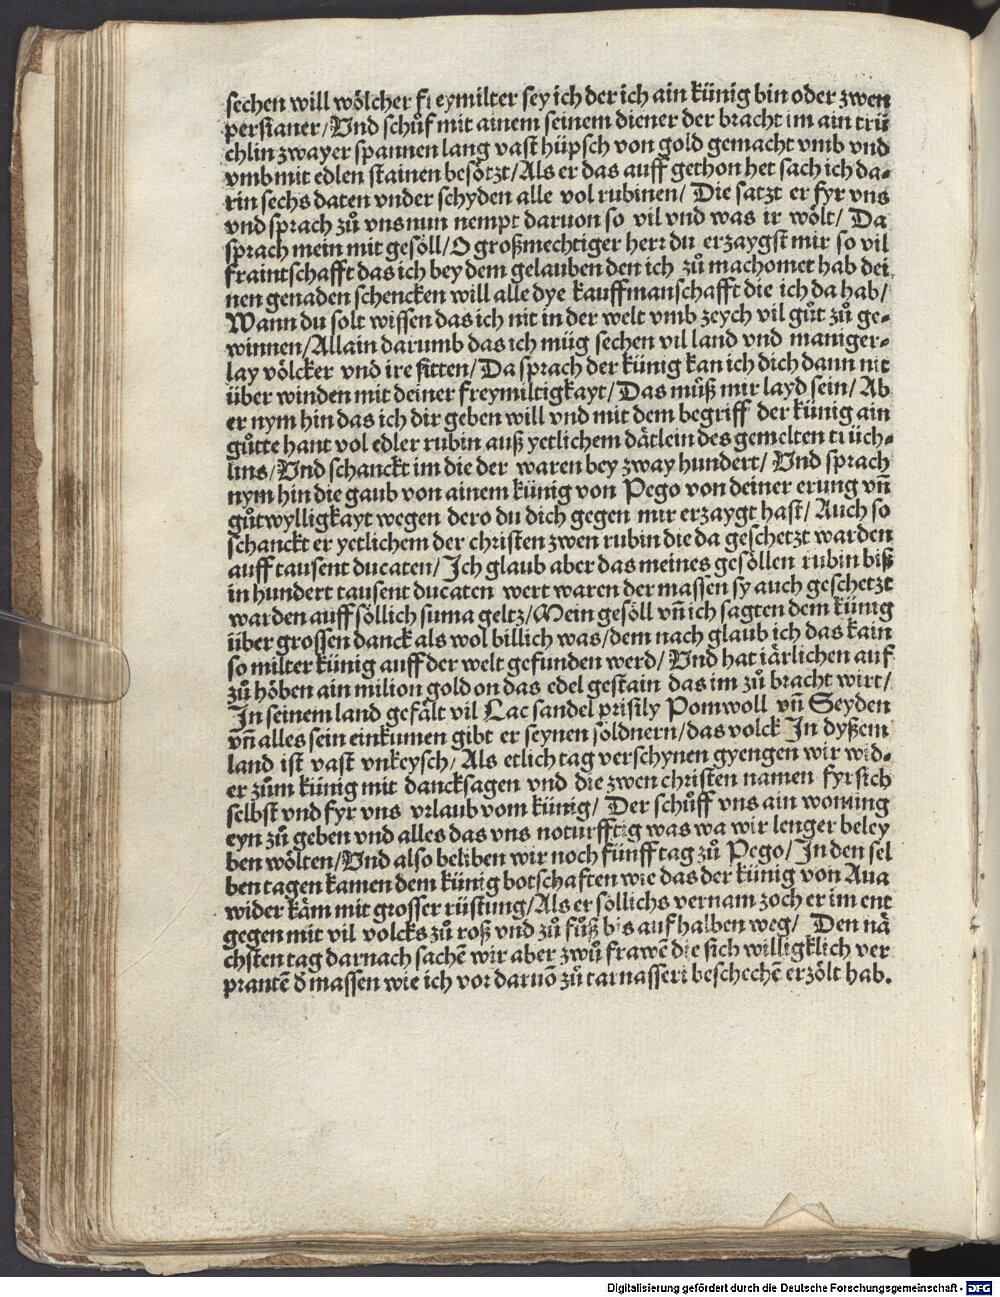 sechen will wölcher freymilter sey ich der ich ain künig bin oder zwen
persianer/ Vnd schůf mit ainem seinem diener der bracht im ain trü
chlin zwayer spannen lang vast hüpsch von gold gemacht vmb vnd
vmb mit edlen stainen besötzt/ Als er das auff gethon het sach ich da⸗
rin sechs daten vnder schyden alle vol rubinen/ Die satzt er fyr vns
vnd sprach zů vns nun nempt daruon so vil vnd was ir wölt/ Da
sprach mein mit gesöll/ O großmechtiger herr du erzaygst mir so vil
fraintschafft das ich bey dem gelauben den ich zů machomet hab dei
nen genaden schencken will alle dye kauffmanschafft die ich da hab/
Wann du solt wissen das ich nit in der welt vmb zeych vil gůt zů ge⸗
winnen/ Allain darumb das ich müg sechen vil land vnd maniger⸗
lay völcker vnd ire sitten/ Da sprach der künig kan ich dich dann nit
über winden mit deiner freymiltigkayt/ Das můß mir layd sein/ Ab
er nym hin das ich dir geben will vnd mit dem begriff der künig ain
gůtte hant vol edler rubin auß yetlichem dätlein des gemelten trüch⸗
lins/ Vnd schanckt im die der waren bey zway hundert/ Vnd sprach
nym hin die gaub von ainem künig von Pego von deiner erung vñ
gůtwylligkayt wegen dero du dich gegen mir erzaygt hast/ Auch so
schanckt er yetlichem der christen zwen rubin die da geschetzt warden
auff tausent ducaten/ Ich glaub aber das meines gesöllen rubin biß
in hundert tausent ducaten wert waren der massen sy auch geschetzt
warden auff söllich suma geltz/ Mein gesöll vñ ich sagten dem künig
über grossen danck als wol billich was/ dem nach glaub ich das kain
so milter künig auff der welt gefunden werd/ Vnd hat iärlichen auf
zů höben ain milion gold on das edel gestain das im zů bracht wirt/
In seinem land gefält vil Lac sandel prisily Pomwoll vñ Seyden
vñ alles sein einkumen gibt er seynen söldnern/ das volck In dyßem
land ist vast vnkeysch/ Als etlich tag verschynen gyengen wir wid⸗
er zům künig mit dancksagen vnd die zwen christen namen fyr sich
selbst vnd fyr vns vrlaub vom künig/ Der schůff vns ain wonung
eyn zů geben vnd alles das vns noturfftig was wa wir lenger beley
ben wölten/ Vnd also beliben wir noch fünff tag zů Pego/ In den sel
ben tagen kamen dem künig botschaften wie das der künig von Aua
wider käm mit grosser rüstung/ Als er söllichs vernam zoch er im ent
gegen mit vil volcks zů roß vnd zů fůß bis auf halben weg/ Den nä
chsten tag darnach sachē wir aber zwů frawē die sich willigklich ver
prantē d̄ massen wie ich vor daruō zů tarnasseri beschechē erzölt hab.
Digitalisierung gefördert durch die Deutsche Forschungsgemeinschaft - DFG